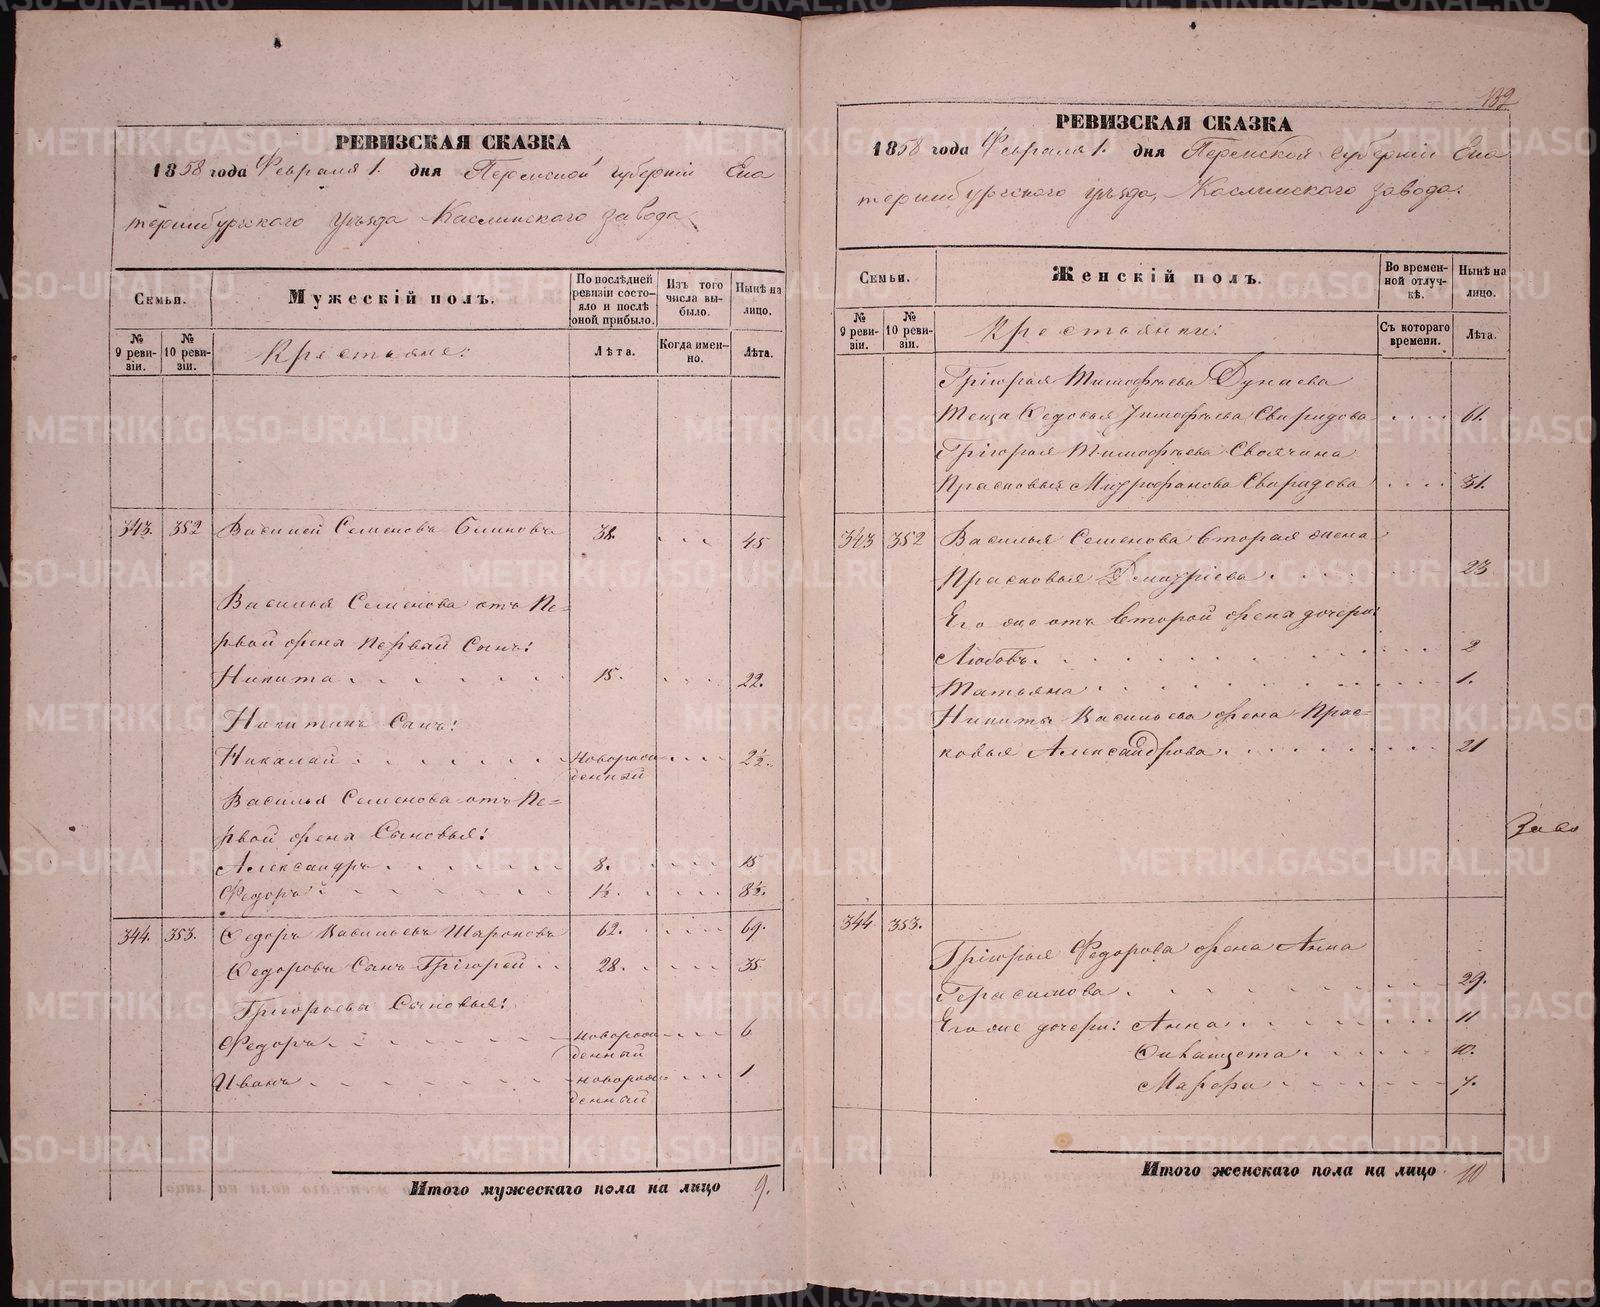 РЕВИЗСКАЯ СКАЗКА
1858 года Февраля 1. дня Пермской губерніи Ека
теринбургскаго уѣзда Каслинскаго завода
Семьи.
Мужескій полъ.
По послѣдней ревизіи состояло и послѣ оной прибыло.
Изъ того числа выбыло.
Нынѣ на лицо.
№ 9 ревизіи.
№ 10 ревизіи.
Крестьяне:
Лѣта.
Когда именно.
Лѣта.
343. 352 Василей Семеновъ Блиновъ 38. 45
Василья Семенова отъ Пе=
рвой жены первый Сынъ:
Никита 15. 22.
Никитинъ Сынъ:
Николай Новорожденный 2½.
Василья Семенова отъ Пе=
рвой жены Сыновья:
Александръ 8. 15
Федоръ 1½. 8½.
344. 353. Ѳедоръ Васильевъ Шароновъ 62. 69.
Ѳедоровъ Сынъ Григорей 28. 35
Григорьевы Сыновья:
Федоръ новорожденный 6
Иванъ новорожденный 1
Итого мужескаго пола на лицо 9.
132
РЕВИЗСКАЯ СКАЗКА
1858 года Февраля 1. дня Пермской губерніи Ека
теринбургскаго уѣзда, Каслинскаго завода.
Семьи.
Женскій полъ.
Во временной отлучкѣ.
Нынѣ на лицо.
№ 9 ревизіи.
№ 10 ревизіи.
Крестьянки:
Съ котораго времени.
Лѣта.
Григорья Тимофѣева Дунаева
теща Ѳедосья Тимофѣева Свиридова 61.
Григорья Тимофѣева Своячина
Прасковья Митрофанова Свиридова 31.
343 352 Василья Семенова вторая жена
Прасковья Дмитріева 23
Его же отъ второй жены дочери:
Любовь 2
Татьяна 1.
Никиты Васильева жена Прас=
ковья Александрова 21
344 353.
Григорья Федорова жена Анна
Герасимова 29.
Его же дочери: Анна 11
Елизавета 10.
Марфа 7.
Итого женскаго пола на лицо 10
METRIKI.GASO-URAL.RU